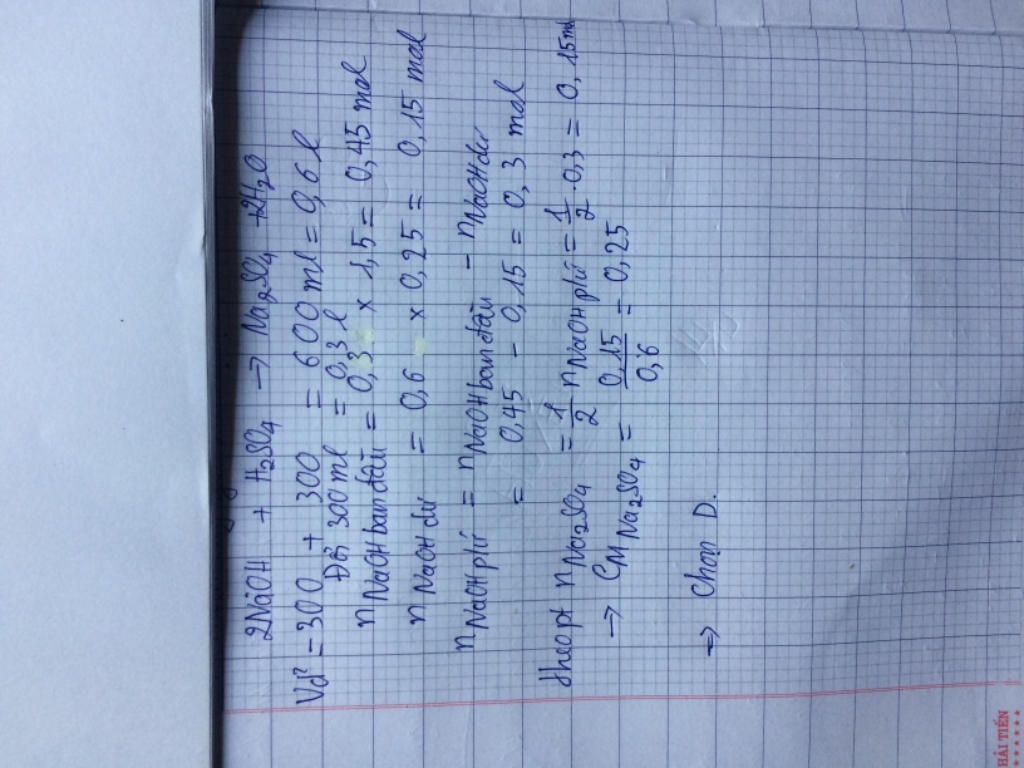 2NaOH + H₂SO₄ → Na₂SO₄ + 2H₂O
Vd² = 300 + 300 = 600 ml = 0,6 l
Đổi 300 ml = 0,3 l
n NaOH ban đầu = 0,3 × 1,5 = 0,45 mol
n NaOH dư = 0,6 × 0,25 = 0,15 mol
n NaOH pứ = n NaOH ban đầu - n NaOH dư
= 0,45 - 0,15 = 0,3 mol
theo pt n Na₂SO₄ = 1/2 n NaOH pứ = 1/2 . 0,3 = 0,15 mol
→ CM Na₂SO₄ = 0,15/0,6 = 0,25
⇒ Chọn D.
HẢI TIẾN